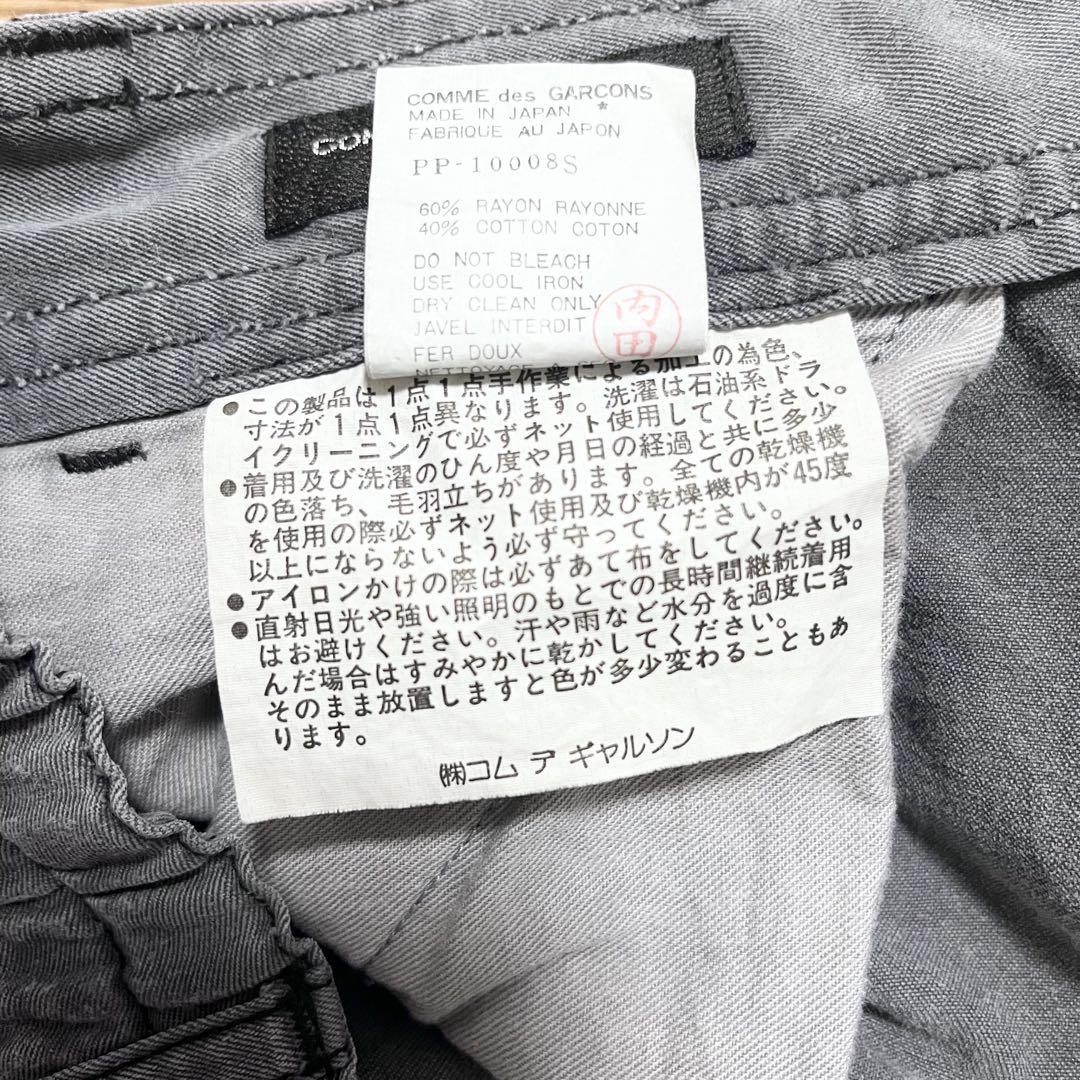 COMME des GARCONS
MADE IN JAPAN *
FABRIQUE AU JAPON
PP-10008S
60% RAYON RAYONNE
40% COTTON COTON
DO NOT BLEACH
USE COOL IRON
DRY CLEAN ONLY
JAVEL INTERDIT
FER DOUX
内田
●この製品は1点1点手作業による加工の為色、
寸法が1点1点異なります。洗濯は石油系ドラ
イクリーニングで必ずネット使用してください。
●着用及び洗濯のひん度や月日の経過と共に多少
の色落ち、毛羽立ちがあります。全ての乾燥機
を使用の際必ずネット使用及び乾燥機内が45度
以上にならないよう必ず守ってください。
●アイロンかけの際は必ずあて布をしてください。
●直射日光や強い照明のもとでの長時間継続着用
はお避けください。汗や雨など水分を過度に含
んだ場合はすみやかに乾かしてください。
そのまま放置しますと色が多少変わることもあ
ります。
㈱コム デ ギャルソン